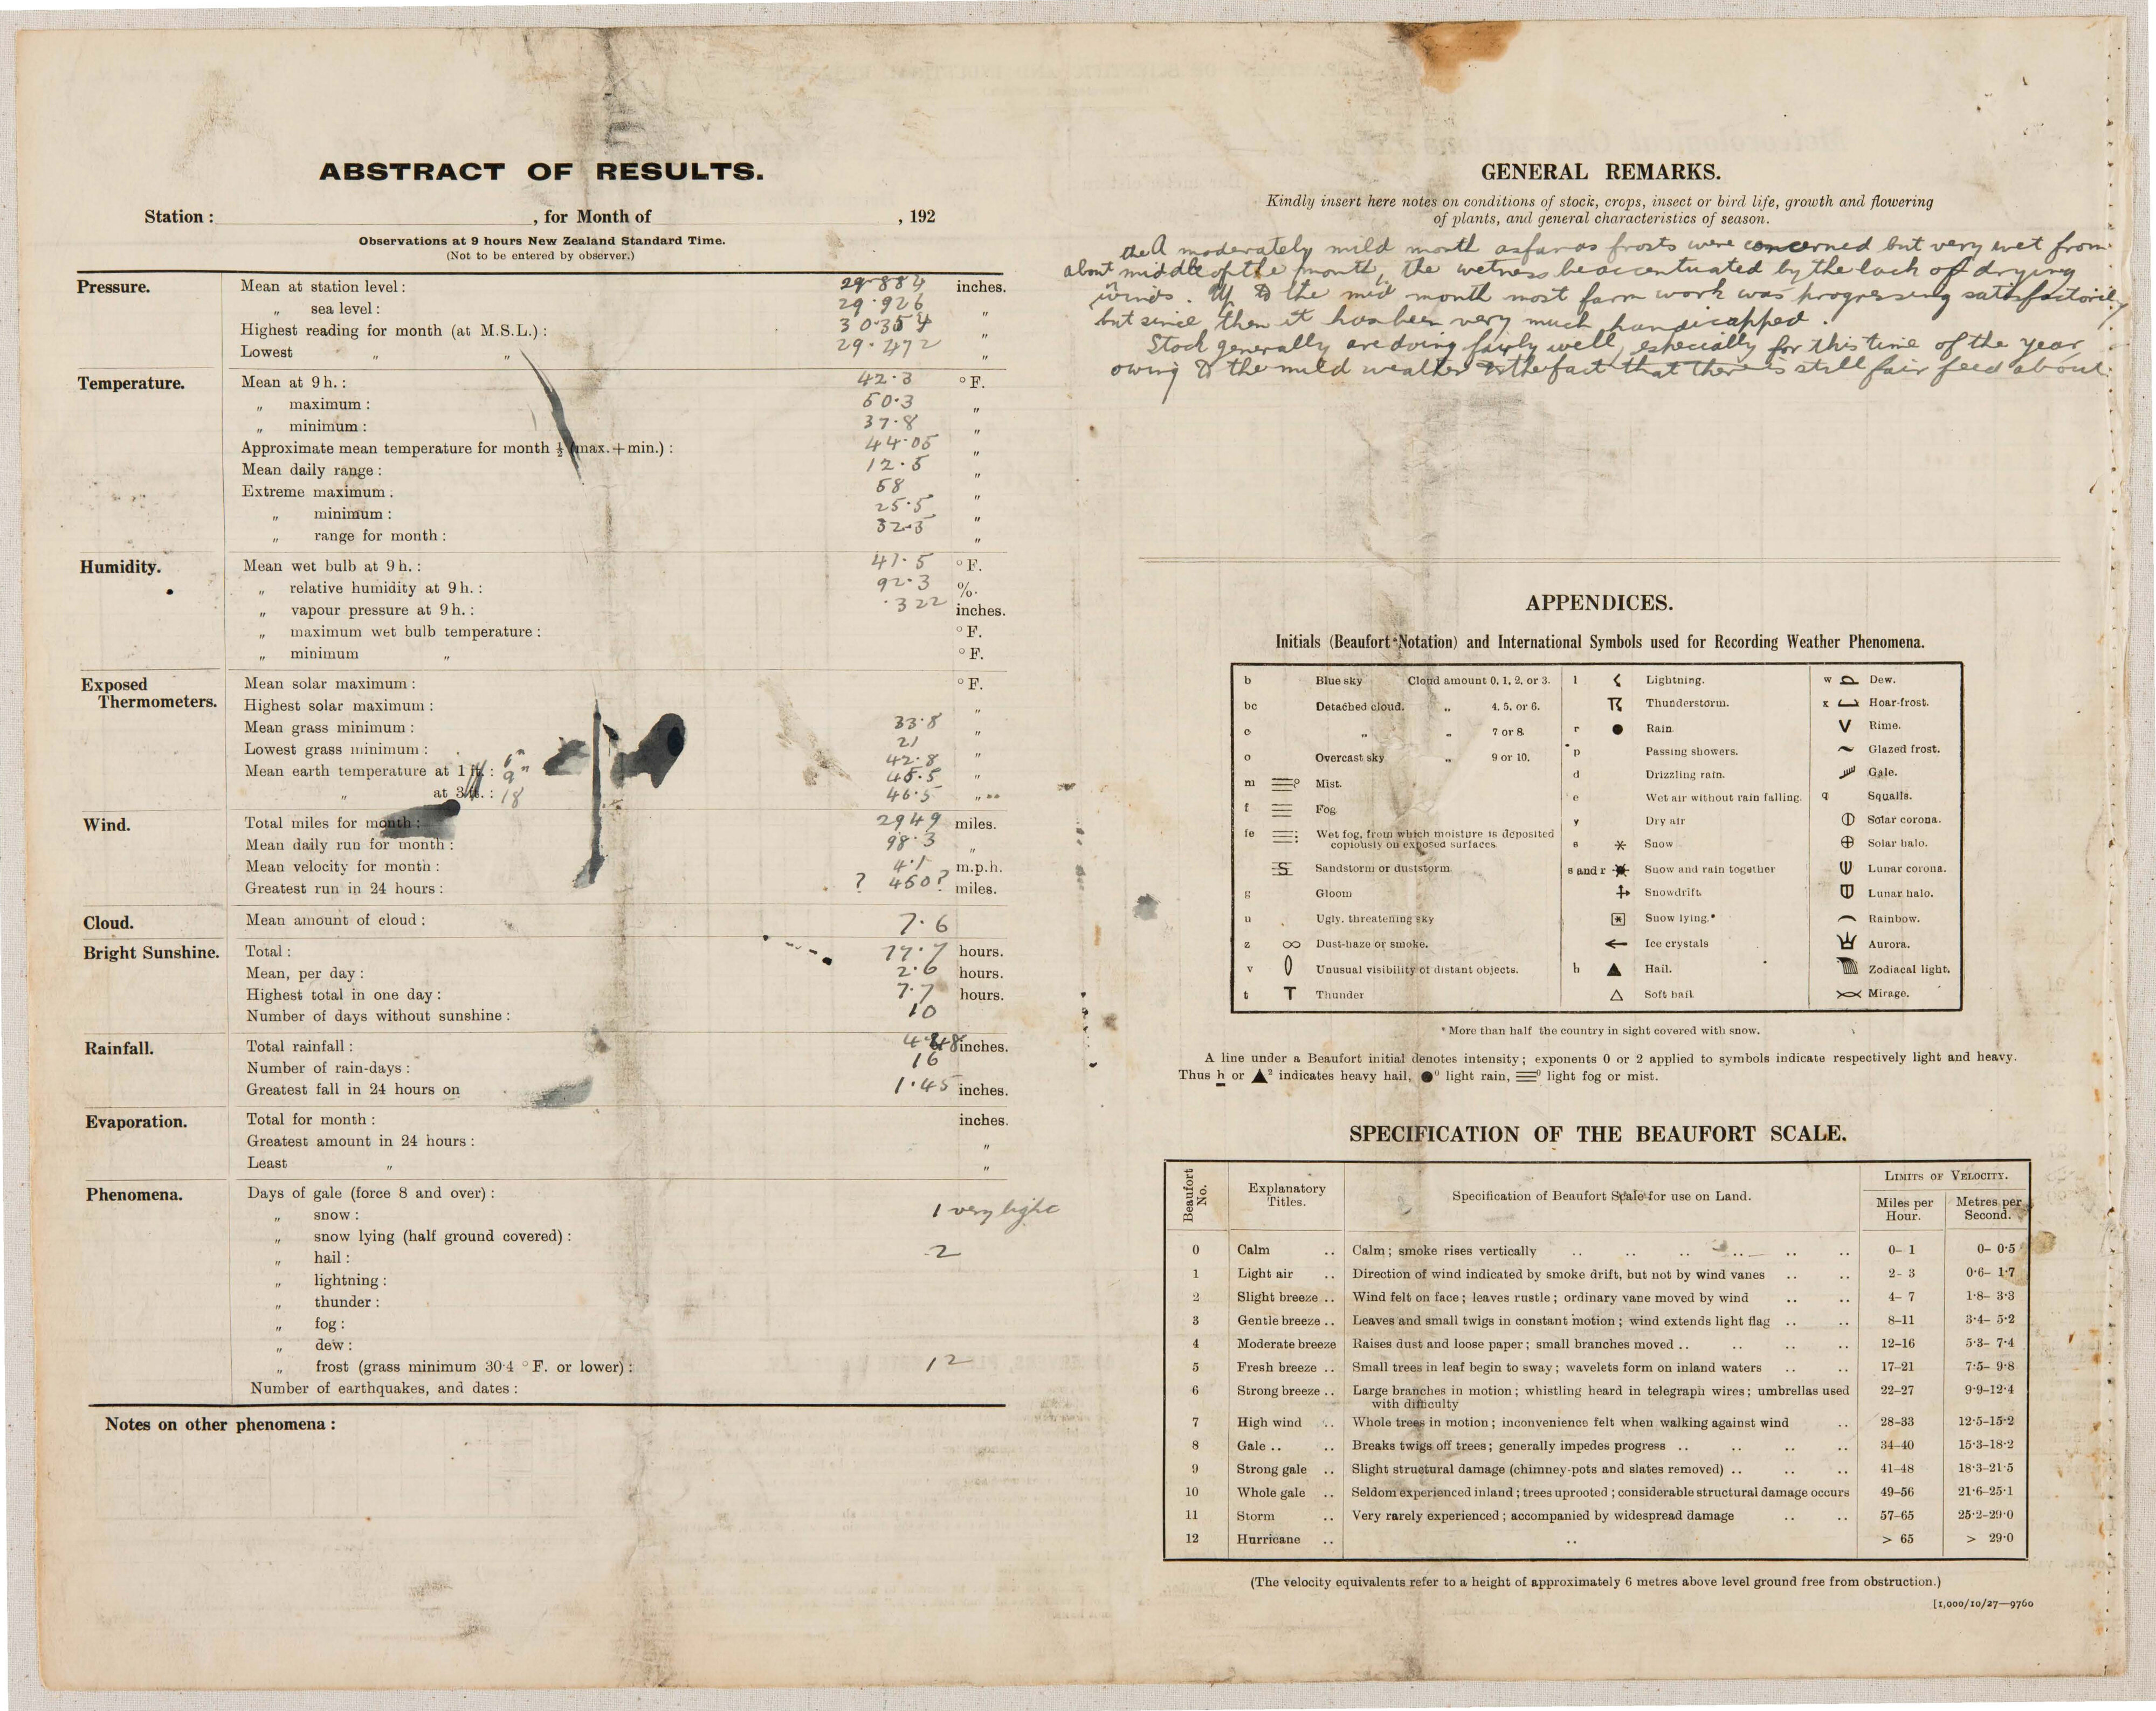 ABSTRACT OF RESULTS.
Station : , for Month of , 192
Observations at 9 hours New Zealand Standard Time.
(Not to be entered by observer.)
Pressure. Mean at station level : 29·884 inches.
„ sea level : 29·926 „
Highest reading for month (at M.S.L.) : 30354 „
Lowest „ „ 29·472 „
Temperature. Mean at 9 h. : 42·3 ° F.
„ maximum : 50·3 „
„ minimum : 37·8
Approximate mean temperature for month ½ (max. + min.) : 44·05 „
Mean daily range : 12·5 „
Extreme maximum : 58 „
„ minimum : 25·5 „
„ range for month : 32·5 „
Humidity. Mean wet bulb at 9 h. : 41·5 ° F.
„ relative humidity at 9 h. : 92·3 %.
„ vapour pressure at 9 h. : ·322 inches.
„ maximum wet bulb temperature : ° F.
„ minimum „ ° F.
Exposed Thermometers. Mean solar maximum : ° F.
Highest solar maximum : „
Mean grass minimum : 33·8 „
Lowest grass minimum : 21 „
6" 42·8
Mean earth temperature at 1 ft. : 9" 45·5 „
„ at 3 ft. : 18 46·5 „
Wind. Total miles for month : 2949 miles.
Mean daily run for month : 98·3 „
Mean velocity for month : 4·1 m.p.h.
Greatest run in 24 hours : ? 450? miles.
Cloud. Mean amount of cloud : 7·6
Bright Sunshine. Total : 77·7 hours.
Mean, per day : 2·6 hours.
Highest total in one day : 7·7 hours.
Number of days without sunshine : 10
Rainfall. Total rainfall : inches.
Number of rain-days : 16
Greatest fall in 24 hours on 1·45 inches.
Evaporation. Total for month : inches.
Greatest amount in 24 hours : „
Least „ „
Phenomena. Days of gale (force 8 and over) :
„ snow : 1 very light
„ snow lying (half ground covered) :
„ hail : 2
„ lightning :
„ thunder :
„ fog :
„ dew :
„ frost (grass minimum 30·4 ° F. or lower) : 12
Number of earthquakes, and dates :
Notes on other phenomena :
GENERAL REMARKS.
Kindly insert here notes on conditions of stock, crops, insect or bird life, growth and flowering
of plants, and general characteristics of season.
A moderately mild month as far as frosts were concerned but very wet from the
about middle of the month, the wetness being accentuated by the lack of drying
winds. Up to the mid month most farm work was progressing satisfactorily
but since then it has been very much handicapped.
Stock generally are doing fairly well, especially for this time of the year
owing to the mild weather & the fact that there is still fair feed about.
APPENDICES.
Initials (Beaufort Notation) and International Symbols used for Recording Weather Phenomena.
b Blue sky Cloud amount 0, 1, 2, or 3. l Lightning. w Dew.
bc Detached cloud. „ 4, 5, or 6. Thunderstorm. x Hoar-frost.
c „ „ 7 or 8. r ● Rain. V Rime.
o Overcast sky „ 9 or 10. p Passing showers. Glazed frost.
m Mist. d Drizzling rain. Gale.
f ≡ Fog. e Wet air without rain falling. q Squalls.
fe Wet fog, from which moisture is deposited copiously on exposed surfaces. y Dry air Solar corona.
s Snow ⊕ Solar halo.
Sandstorm or duststorm s and r Snow and rain together Lunar corona.
g Gloom Snowdrift. Lunar halo.
u Ugly, threatening sky Snow lying.* Rainbow.
z ∞ Dust-haze or smoke. ← Ice crystals Aurora.
v Unusual visibility of distant objects. h ▲ Hail. Zodiacal light.
t T Thunder △ Soft hail Mirage.
* More than half the country in sight covered with snow.
A line under a Beaufort initial denotes intensity ; exponents 0 or 2 applied to symbols indicate respectively light and heavy.
Thus h or ▲² indicates heavy hail, ●⁰ light rain, ≡⁰ light fog or mist.
SPECIFICATION OF THE BEAUFORT SCALE.
Beaufort No. Explanatory Titles. Specification of Beaufort Scale for use on Land. LIMITS OF VELOCITY.
Miles per Hour. Metres per Second.
0 Calm .. Calm ; smoke rises vertically .. .. .. .. .. .. 0– 1 0– 0·5
1 Light air .. Direction of wind indicated by smoke drift, but not by wind vanes .. .. 2– 3 0·6– 1·7
2 Slight breeze .. Wind felt on face ; leaves rustle ; ordinary vane moved by wind .. .. 4– 7 1·8– 3·3
3 Gentle breeze .. Leaves and small twigs in constant motion ; wind extends light flag .. .. 8–11 3·4– 5·2
4 Moderate breeze Raises dust and loose paper ; small branches moved .. .. .. .. 12–16 5·3– 7·4
5 Fresh breeze .. Small trees in leaf begin to sway ; wavelets form on inland waters .. .. 17–21 7·5– 9·8
6 Strong breeze .. Large branches in motion ; whistling heard in telegraph wires ; umbrellas used 22–27 9·9–12·4
with difficulty
7 High wind .. Whole trees in motion ; inconvenience felt when walking against wind .. 28–33 12·5–15·2
8 Gale .. .. Breaks twigs off trees ; generally impedes progress .. .. .. .. 34–40 15·3–18·2
9 Strong gale .. Slight structural damage (chimney-pots and slates removed) .. .. .. 41–48 18·3–21·5
10 Whole gale .. Seldom experienced inland ; trees uprooted ; considerable structural damage occurs 49–56 21·6–25·1
11 Storm .. Very rarely experienced ; accompanied by widespread damage .. .. 57–65 25·2–29·0
12 Hurricane .. .. > 65 > 29·0
(The velocity equivalents refer to a height of approximately 6 metres above level ground free from obstruction.)
[1,000/10/27—9760